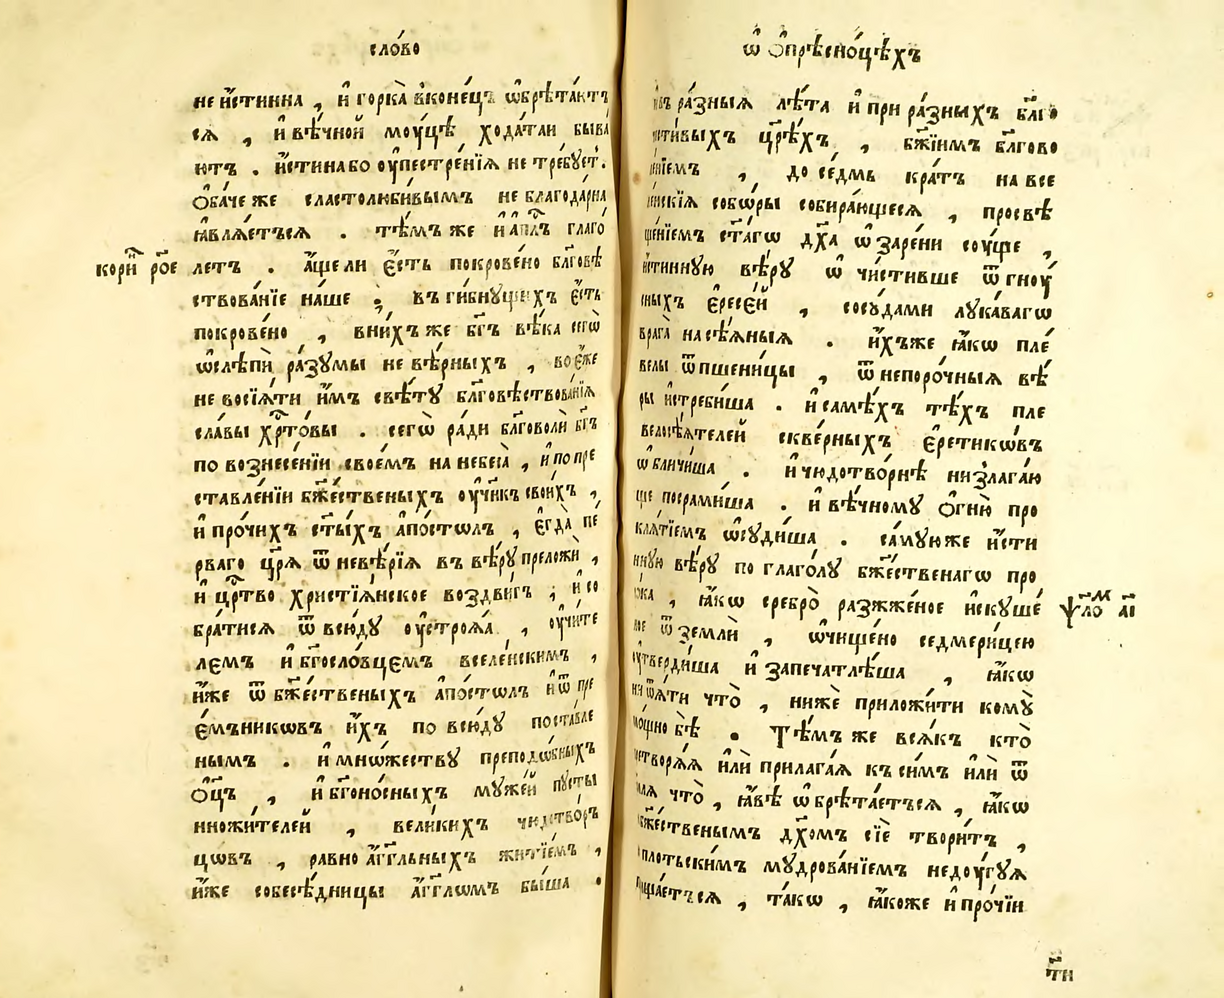 сло́во
не и҆́стинна , и҆ горка̀ вконе́цъ ѡ҆брѣта́ютъ
сѧ , и҆ вѣ́чной моу́цѣ хода́таи быва́
ютъ . и҆́стина бо ѹ҆пестре́нїѧ не тре́бꙋет̾.
Ѻ҆ба́че же сластолюби́вымъ не благода́рна
ꙗ҆влѧ́етъсѧ . тѣ́мъ же и҆ а҆п҃лъ глаго́
кори҃н рѯе
летъ . а҆́ще ли є҆́сть покрове́но бл҃говѣ
ствова́нїе на́ше , въ ги́бнꙋщихъ є҆́сть
покрове́но , вни́хъ же бг҃ъ вѣ́ка сегѡ̀
ѡ҆слѣпѝ ра́зꙋмы не вѣ́рныхъ , во є҆́же
не восїѧ́ти и҆̀мъ свѣ́тꙋ бл҃говѣствова́нїѧ
сла́вы хрⷭ҇то́вы . сегѡ̀ ра́ди бл҃говолѝ бг҃ъ
по вознесе́нїи свое́мъ на небеса̀ , и҆ по пре
ставле́нїи бжⷭ҇е́ственыхъ ѹ҆чн҃къ свои́хъ ,
и҆ про́чихъ ст҃ы́хъ а҆по́столъ , є҆гда̀ пе́
рваго цр҃ѧ̀ ѿ невѣ́рїѧ въ вѣ́рꙋ преложѝ ,
и҆ црⷭ҇тво христїѧ́нское воздви́гъ , и҆ со
бра́тисѧ ѿ всю́дꙋ ѹ҆стро́ѧ , ѹ҆чи́те
лемъ и҆ бг҃осло́вцемъ вселе́нскимъ ,
и҆́же ѿ бжⷭ҇е́ственыхъ а҆по́столъ и҆ ѿ пре
є҆́мъникѡвъ и҆́хъ по всю́дꙋ поста́вле
нымъ . и҆ мно́жествꙋ преподо́бныхъ
Ѻ҆ц҃ъ , и҆ бг҃оно́сныхъ мꙋже́й пꙋсты
нножи́телей , вели́кихъ чюдотво́ръ
цѡвъ , равно а҆́гг҃льныхъ житїе́мъ ,
и҆́же собесѣ́дницы а҆́гг҃лѡмъ бы́ша .
ѡ҆ ѻ҆прѣсно́цѣхъ
ра́зныѧ лѣ́та и҆ при ра́зныхъ бл҃го
цр҃ѣ́хъ , бж҃їимъ бл҃гово
, до се́дмь кра́тъ на все
собо́ры собира́ющесѧ , просвѣ
ст҃а́гѡ дх҃а ѡ҆заре́ни сꙋ́ще ,
и҆́стиннꙋю вѣ́рꙋ ѡ҆чи́стивше ѿ гнꙋ́
сныхъ є҆ресе́й , сосꙋ́дами лꙋка́вагѡ
врага̀ насѣ́ѧныѧ . и҆́хъже ꙗ҆́кѡ пле́
велы ѿ пшени́цы , ѿ непоро́чныѧ вѣ́
ры и҆стреби́ша . и҆ самѣ́хъ тѣ́хъ пле
велосѣ́ѧтелей скве́рныхъ є҆ретикѡ́въ
ѡ҆бличи́ша . и҆ чюдотво́рнѣ низлага́ю
ще посрами́ша . и҆ вѣ́чномꙋ ѻ҆гню̀ про
клѧ́тїемъ ѡ҆сꙋди́ша . самꙋ́ю же и҆́сти
ннꙋю вѣ́рꙋ по глаго́лꙋ бжⷭ҇е́ственагѡ про
, ꙗ҆́кѡ сребро̀ разжже́ное и҆скꙋше́
ѱл҃ом аі҃
ное ѿ землѝ , ѡ҆чище́но седмери́цею
ѹ҆тверди́ша и҆ запечатлѣ́ша , ꙗ҆́кѡ
ни ѿѧ́ти что̀ , нижѐ приложи́ти комꙋ̀
мо́щно бѣ̀ . Тѣ́мъ же всѧ́къ кто̀
и҆лѝ прилага́ѧ къ си́мъ и҆лѝ ѿ
что̀ , ꙗ҆́вѣ ѡ҆брѣта́етъсѧ , ꙗ҆́кѡ
бжⷭ҇е́ственымъ дх҃омъ сїѐ твори́тъ ,
пло́тьскимъ мꙋдрова́нїемъ недꙋ́гꙋѧ
, та́кѡ , ꙗ҆́коже и҆ про́чїи